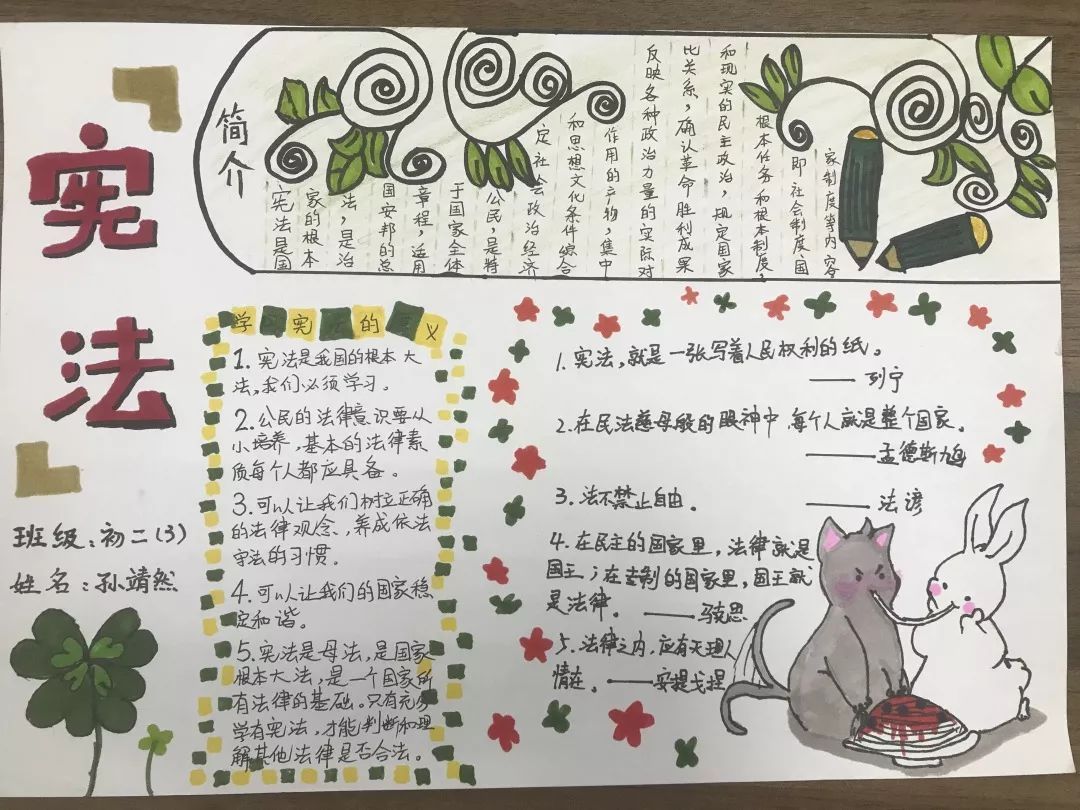 宪
法
班级：初二(3)
姓名：孙靖然
简介
宪法是国
家的根本
法，是治
国安邦的总
章程，适用
于国家全体
公民，是特
定社会政治经济
和思想文化条件综合
作用的产物，集中
反映各种政治力量的实际对
比关系，确认革命胜利成果
和现实的民主政治，规定国家
根本任务和根本制度，
即社会制度、国
家制度等内容
学习宪法的意义
1. 宪法是我国的根本大
法，我们必须学习。
2. 公民的法律意识要从
小培养，基本的法律素
质每个人都应具备。
3. 可以让我们树立正确
的法律观念、养成依法
守法的习惯。
4. 可以让我们的国家稳
定和谐。
5. 宪法是母法，是国家
根本大法，是一个国家所
有法律的基础。只有充分
学有宪法，才能判断和理
解其他法律是否合法。
1. 宪法，就是一张写着人民权利的纸。
—— 列宁
2. 在民法慈母般的眼神中，每个人就是整个国家。
———孟德斯鸠
3. 法不禁止自由。 ———法谚
4. 在民主的国家里，法律就是
国王；在专制的国家里，国王就
是法律。 ——马克思
5. 法律之内，应有天理人
情在。 ——安提戈捏